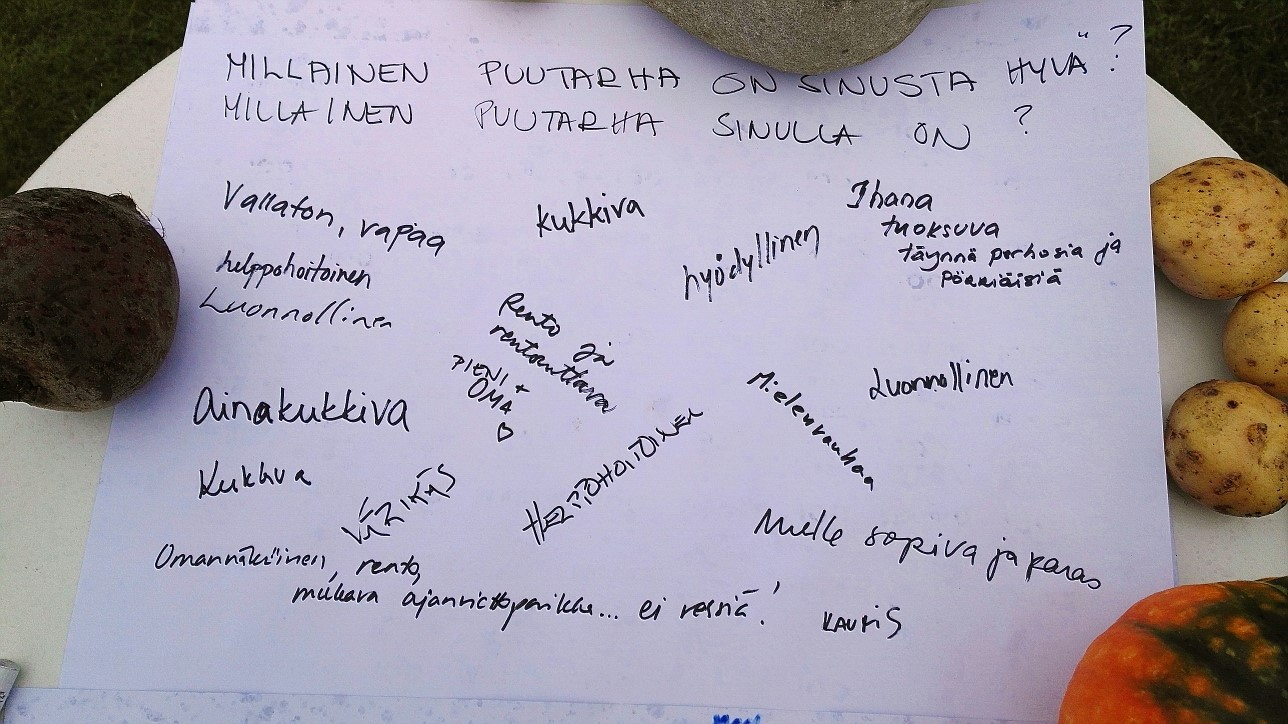 MILLAINEN PUUTARHA ON SINUSTA HYVÄ?
MILLAINEN PUUTARHA SINULLA ON ?
Vallaton, vapaa
kukkiva
Ihana
tuoksuva
täynnä perhosia ja
pörriäisiä
hyödyllinen
helppohoitoinen
Luonnollinen
Rento ja
rentouttava
PIENI +
OMA
Luonnollinen
Mielenrauhaa
Ainakukkiva
Kukkiva
VÄRIKÄS
HELPPOHOITOINEN
Mulle sopiva ja paras
Omannäköinen, rento,
mukava ajanviettopaikka... ei ressiä!
KAUNIS